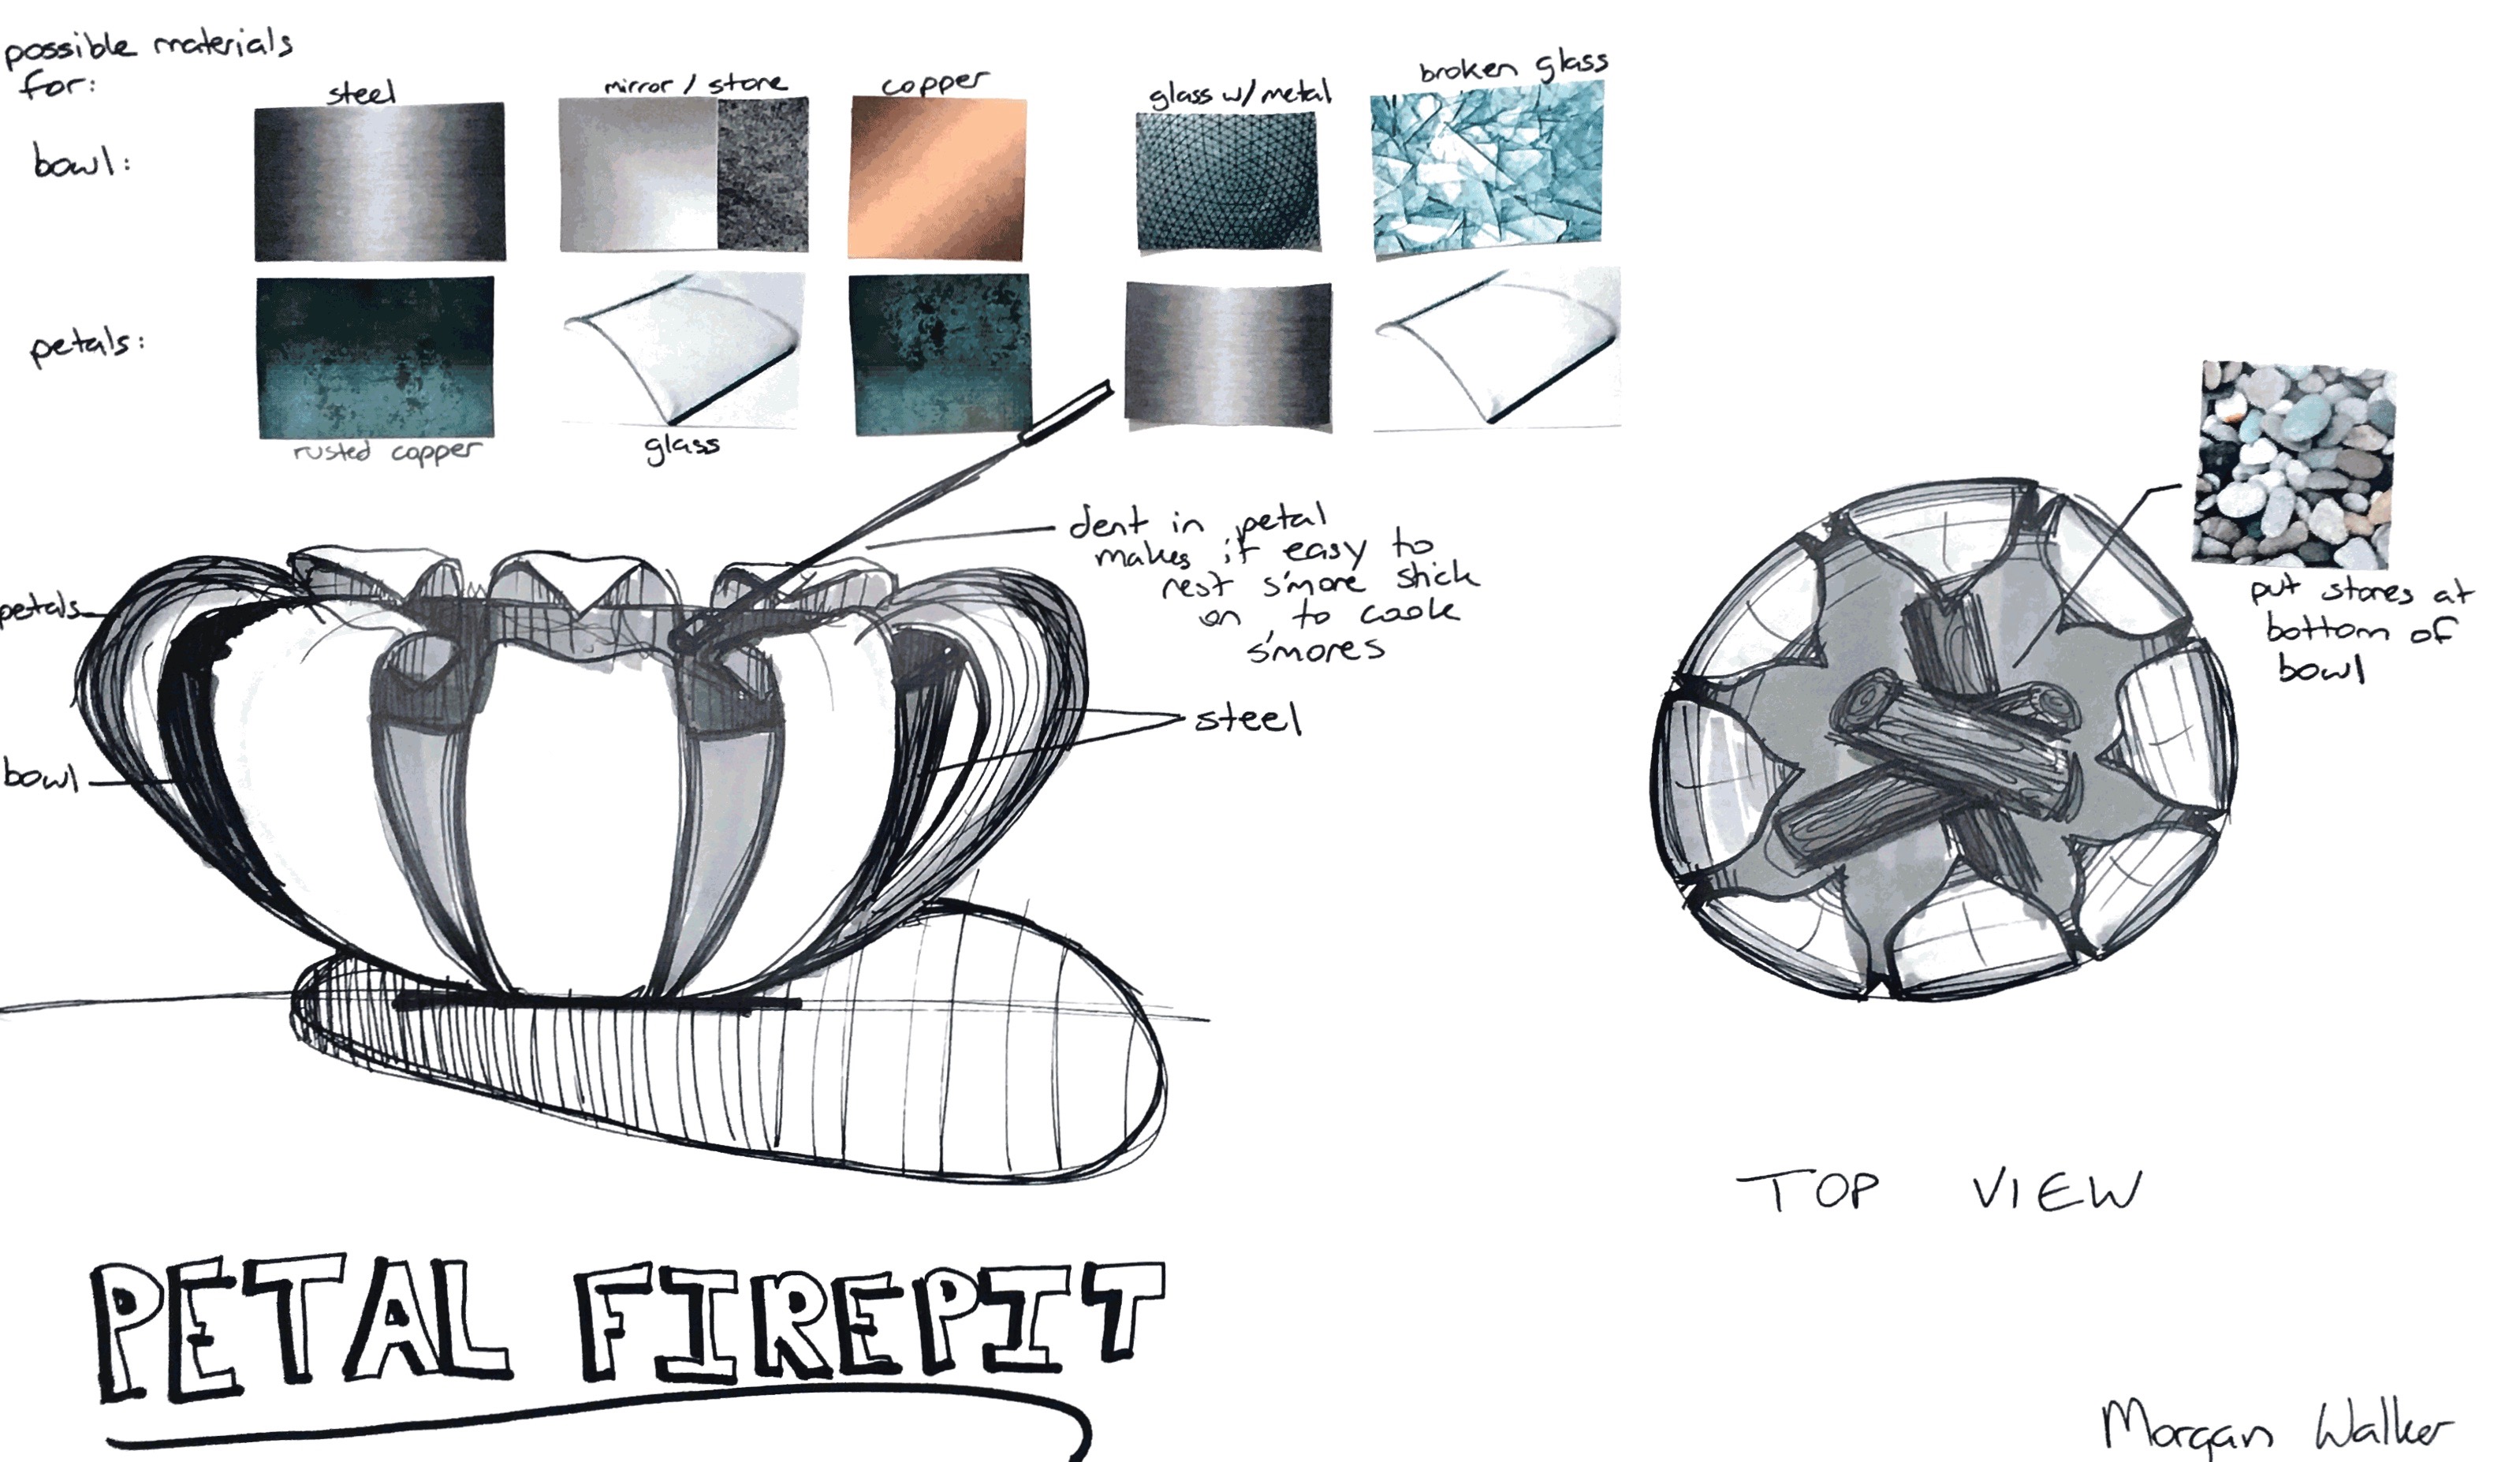 possible materials
for:
steel
mirror / stone
copper
glass w/ metal
broken glass
bowl:
petals:
rusted copper
glass
dent in petal
makes it easy to
rest s'more stick
on to cook
s'mores
petals
bowl
steel
put stones at
bottom of
bowl
TOP VIEW
PETAL FIREPIT
Morgan Walker